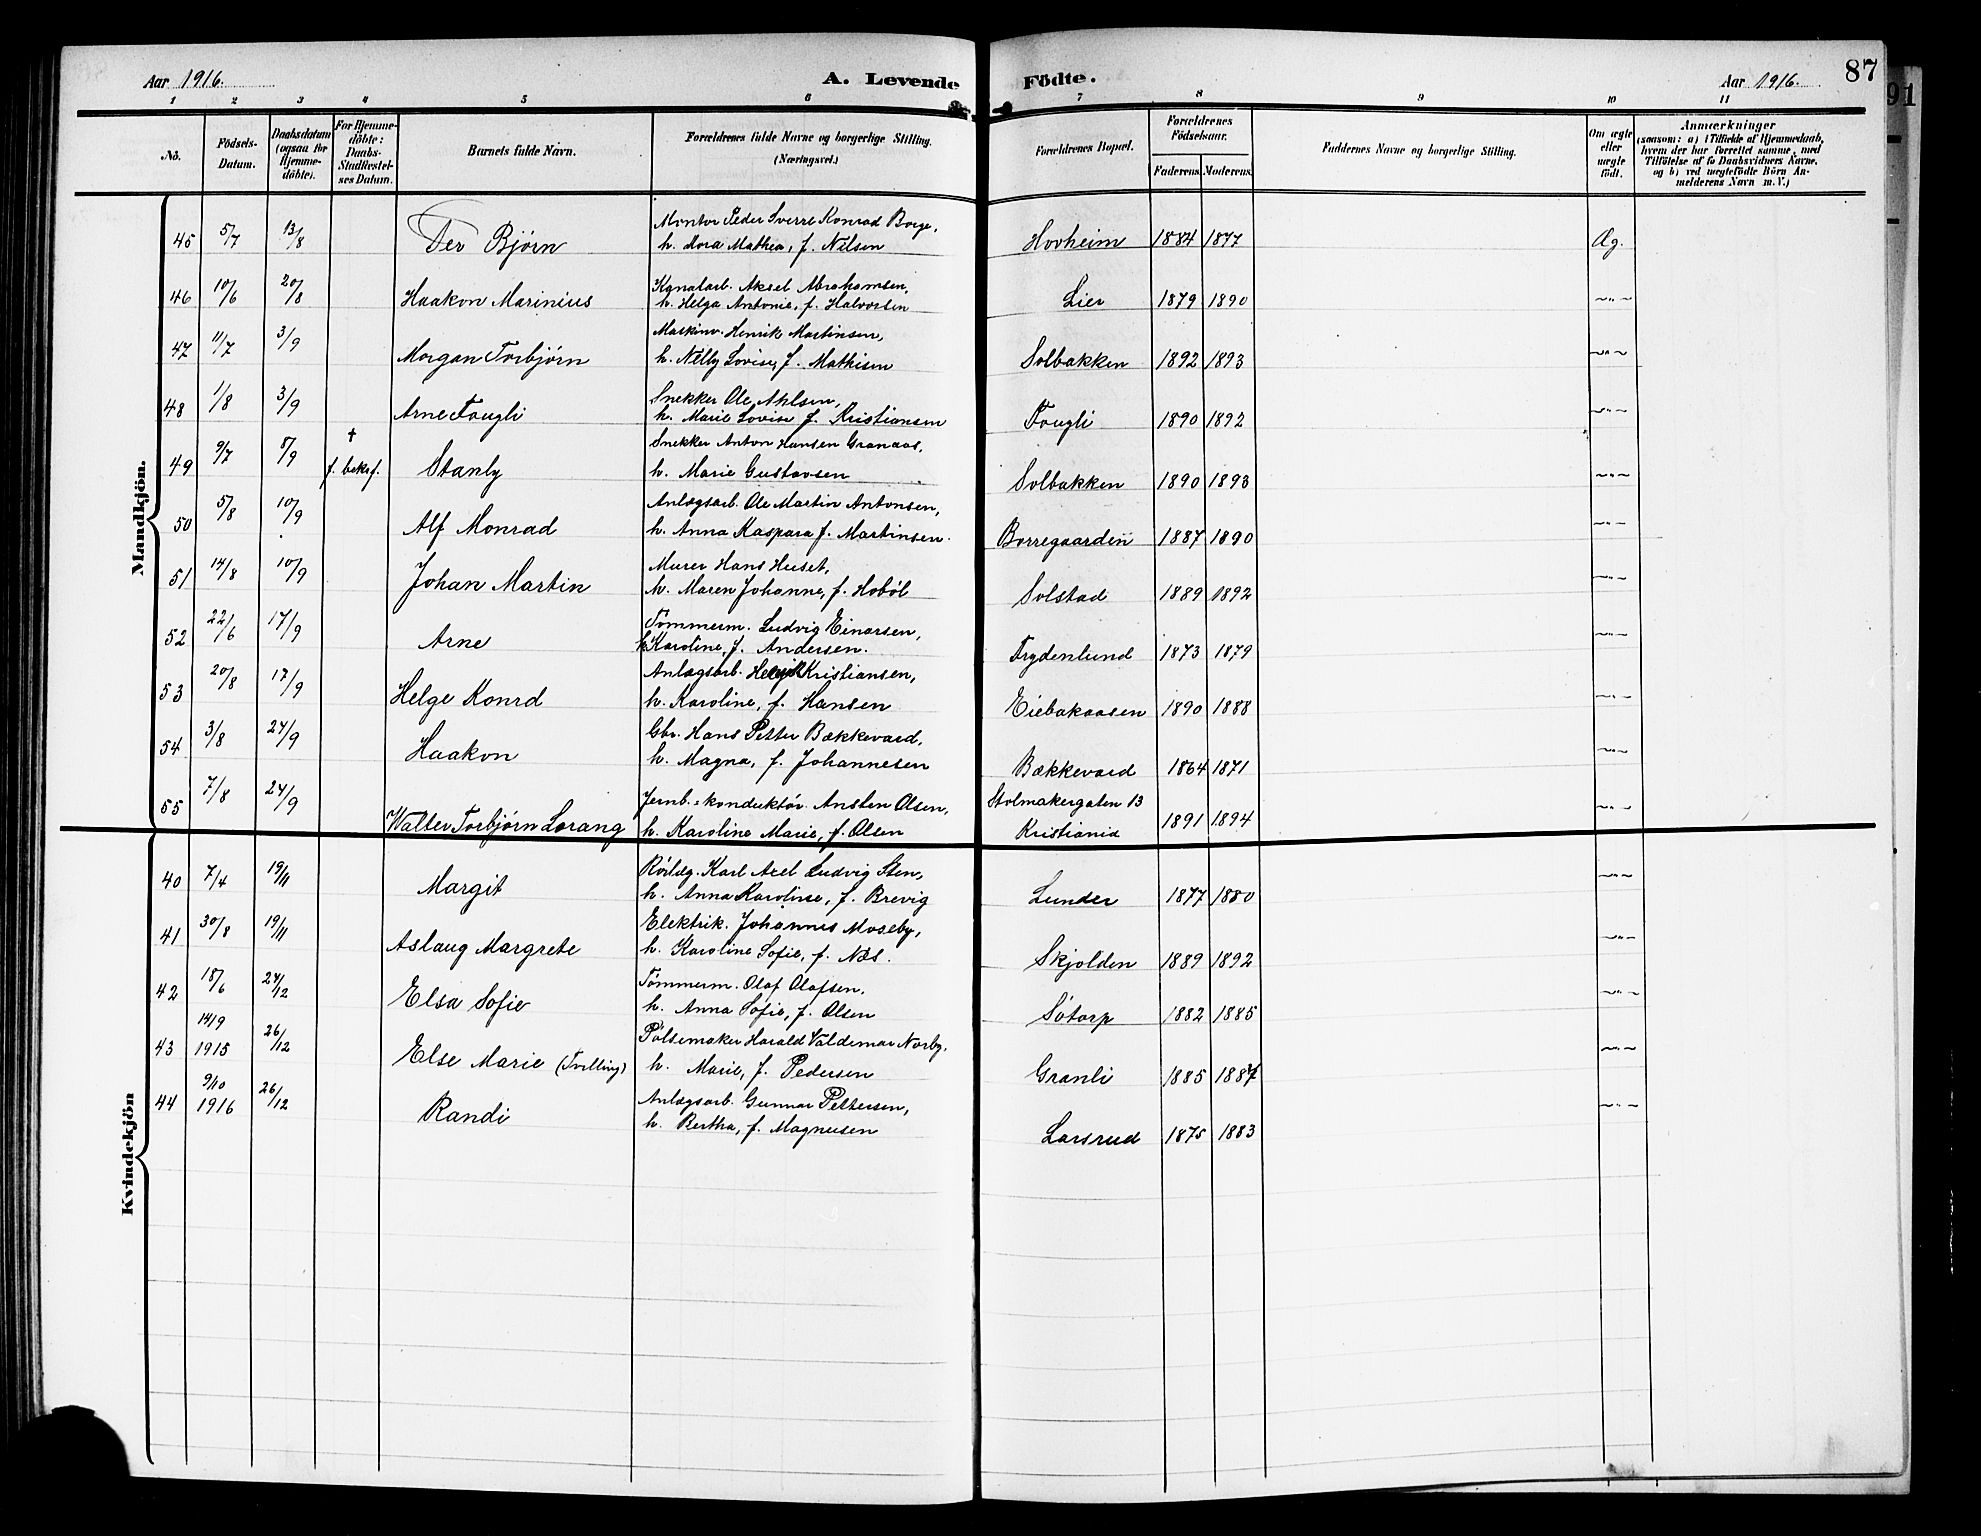 Aar 1916.
A. Levende Födte.
Aar 1916.
87
91
1 2 3 4 5 6 7 8 9 10 11
No.
Födsels-Datum.
Daabsdatum (ogsaa for Hjemme-döbte).
For Hjemme-döbte: Daabs-Stadfæstel-ses Datum.
Barnets fulde Navn.
Forældrenes fulde Navne og borgerlige Stilling. (Næringsvei.)
Forældrenes Bopæl.
Forældrenes Födselsaar.
Faderens Moderens
Faddernes Navne og borgerlige Stilling.
Om ægte eller uægte födt.
Anmærkninger
(saasom: a) i Tilfælde af Hjemmedaab, hvem der har forrettet samme, med Tilföielse af to Daabsvidners Navne. og b) ved uægtefödte Börn An-melderens Navn m. V.)
Mandkjön.
45 5/7 13/8 Per Bjørn Montør Peder Sverre Konrad Borge,
h. Dora Mathea, f. Nilsen Hovheim 1884 1877 Æg.
46 10/6 20/8 Haakon Marinius Kanalarb. Aksel Abrahamsen,
h. Helga Antonie, f. Halvorsen Lier 1879 1890 ~"~
47 11/7 3/9 Morgan Torbjørn Maskinv. Henrik Martinsen,
h. Nelly Lovise, f. Mathisen Solbakken 1892 1893 ~"~
48 1/8 3/9 Arne Fougli Snekker Ole Ahlsen,
h. Marie Lovise f. Kristiansen Fougli 1890 1892 ~"~
49 9/7 8/9 † f. bekr f. Stanly Snekker Anton Hansen Granaas,
h. Marie Gustavsen Solbakken 1890 1893 ~"~
50 5/8 10/9 Alf Monrad Anlægsarb. Ole Martin Antonsen,
h. Anna Kaspara f. Martinsen. Borregaarden 1887 1890 ~"~
51 14/8 10/9 Johan Martin Murer Hans Huset,
h. Maren Johanne, f. Hobøl Solstad 1889 1892 ~"~
52 22/6 17/9 Arne Tömmerm. Ludvig Einarsen,
h. Karoline, f. Andersen. Frydenlund 1873 1879 ~"~
53 20/8 17/9 Helge Konrd Anlægsarb. Kristiansen,
h. Karoline, f. Hansen Eiebakaasen 1890 1888 ~"~
54 3/8 24/9 Haakon Gbr. Hans Petter Bækkevard,
h. Magna, f. Johannesen Bækkevard 1864 1871 ~"~
55 7/8 24/9 Walter Torbjørn Lorang Jernb.=konduktör Ansten Olsen,
h. Karoline Marie, f. Olsen Stolmakergaten 13
Kristiania 1891 1894 ~"~
Kvindekjön
40 7/4 19/11 Margit Rörlæg. Karl Axel Ludvig Sten,
h. Anna Karoline, f. Brevig Lunder 1877 1880 ~"~
41 30/8 19/11 Aslaug Margrete Elektrik. Johannes Moseby,
h. Karoline Sofie, f. Næs. Skjolden 1889 1892 ~"~
42 18/6 24/12 Elsa Sofie Tömmerm. Olaf Olafsen,
h. Anna Sofie, f. Olsen Sötorp 1882 1885 ~"~
43 14/9 1915 26/12 Else Marie (Tvilling) Pölsemaker Harald Valdemar Norby,
h. Marie, f. Pedersen Granli 1885 1887 ~"~
44 9/10 1916 26/12 Randi Anlægsarb. Gunnar Pettersen,
h. Bertha, f. Magnusen Larsrud 1875 1883 ~"~